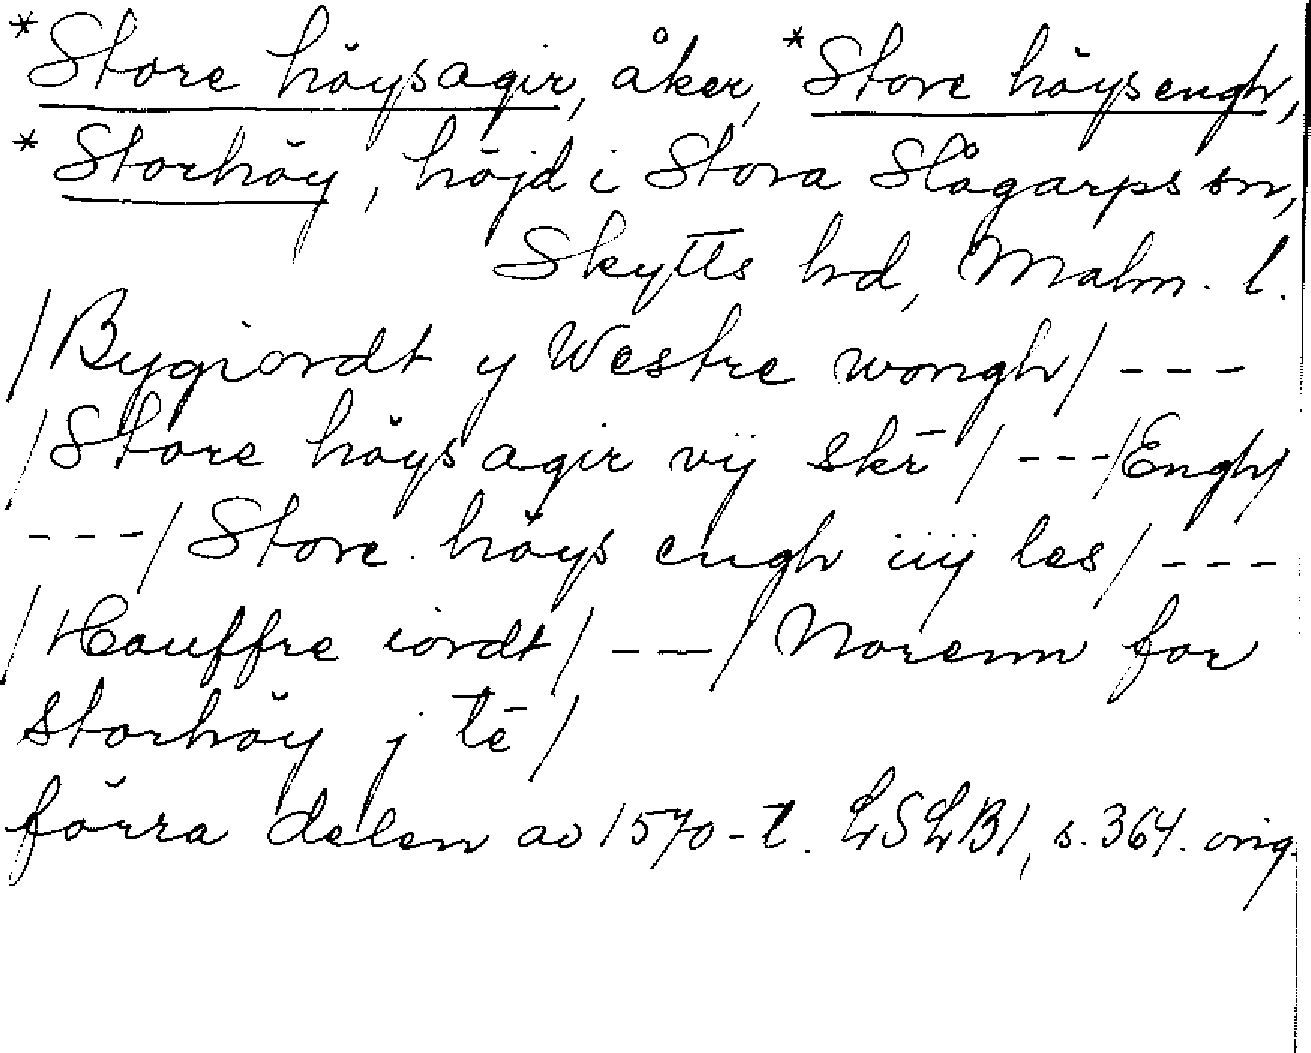 *Store höysagir, åker, *Store höysengh,
*Storhöy, höjd i Stora Slågarps sn,
Skytts hd, Malm. l.
/Bygiordt y Westre wongh/ ---
/Store höys agir vij skr̄ / ---/Engh/
---/Store höys engh iiij les/ ---
/Hauffre iordt/ ---/Norenn for
storhöy j tē/
förra delen av 1570-t. LSLB1, s. 364. orig.